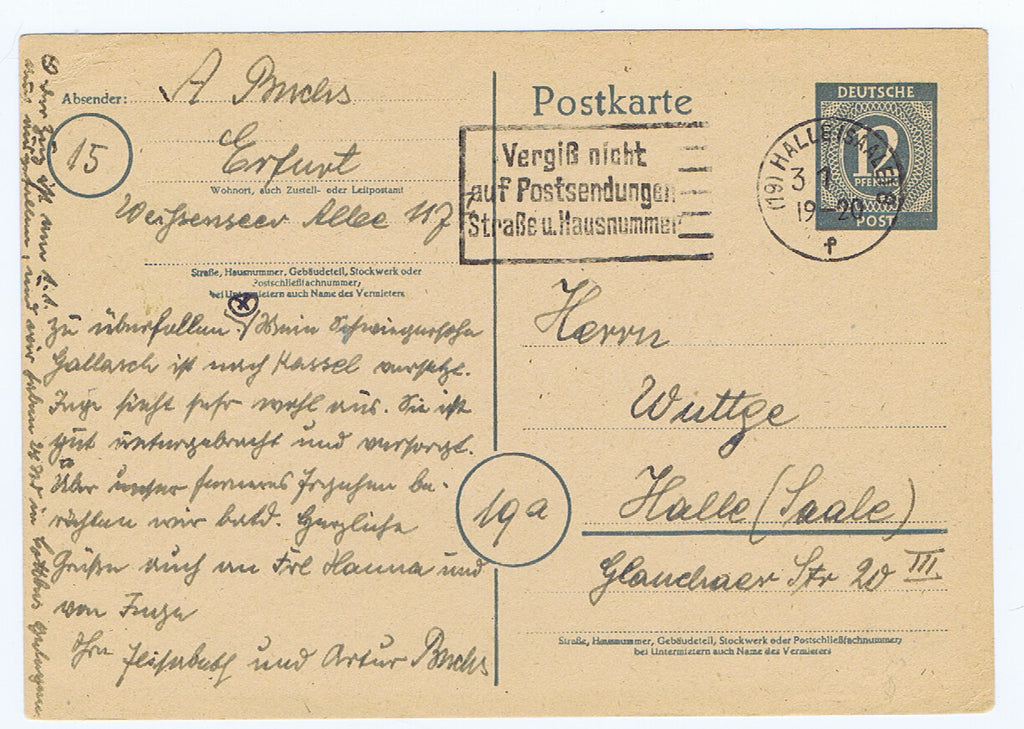 Absender: A Buchs
15
Erfurt
Wohnort, auch Zustell- oder Leitpostamt
Weissenseer Allee 117
Straße, Hausnummer, Gebäudeteil, Stockwerk oder
Postschließfachnummer,
bei Untermietern auch Name des Vermieters
zu überfallen. Mein Schwiegersohn
Gallasch ist nach Kassel versetzt.
Inge sieht sehr wohl aus. Sie ist
gut untergebracht und versorgt.
Über unser ferneres Ergehen be-
richten wir bald. Herzliche
Grüße auch an Frl Hanna und
von Inge
Ihre Elisabeth und Artur Buchs
der Zug ist am 1.1.
und wir haben 24 Std in Cottbus gelegen.
Postkarte
Vergiß nicht
auf Postsendungen
Straße u. Hausnummer
(19) HALLE (SAALE)
19-20
f
DEUTSCHE
12
PFENNIG
POST
Herrn
Wuttge
19a
Halle (Saale)
Glauchaer Str 20 III
Straße, Hausnummer, Gebäudeteil, Stockwerk oder Postschließfachnummer;
bei Untermietern auch Name des Vermieters